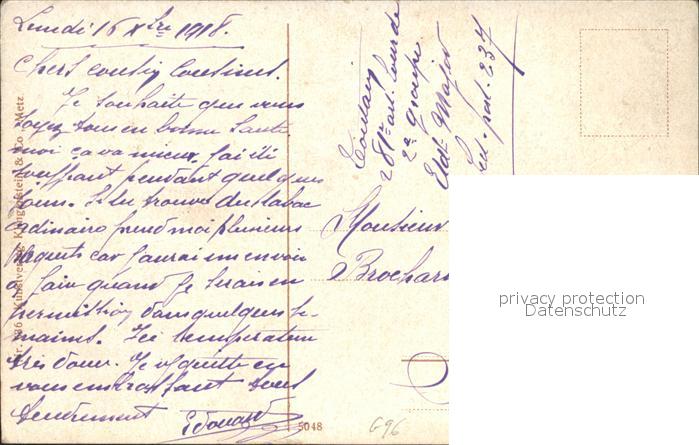 Lundi 16 Xbre 1918.
Chers cousin Cousines.
Je souhaite que vous
soyez tous en bonne santé
moi ça va mieux. J'ai été
souffrant pendant quelques
jours. Si tu trouves du tabac
ordinaire prend moi plusieurs
paquets car j'aurai un envoi
à faire quand je serai en
permission dans quelques se-
maines. Ici température
très doux. Je vs quitte en
vous embrassant tous
tendrement Edouard
281e art. lourde
2e groupe
Etat Major
sect. post. 237
Monsieur
Brochar
Nr. Kunstverlag & Co., Metz
5048
G96
privacy protection
Datenschutz